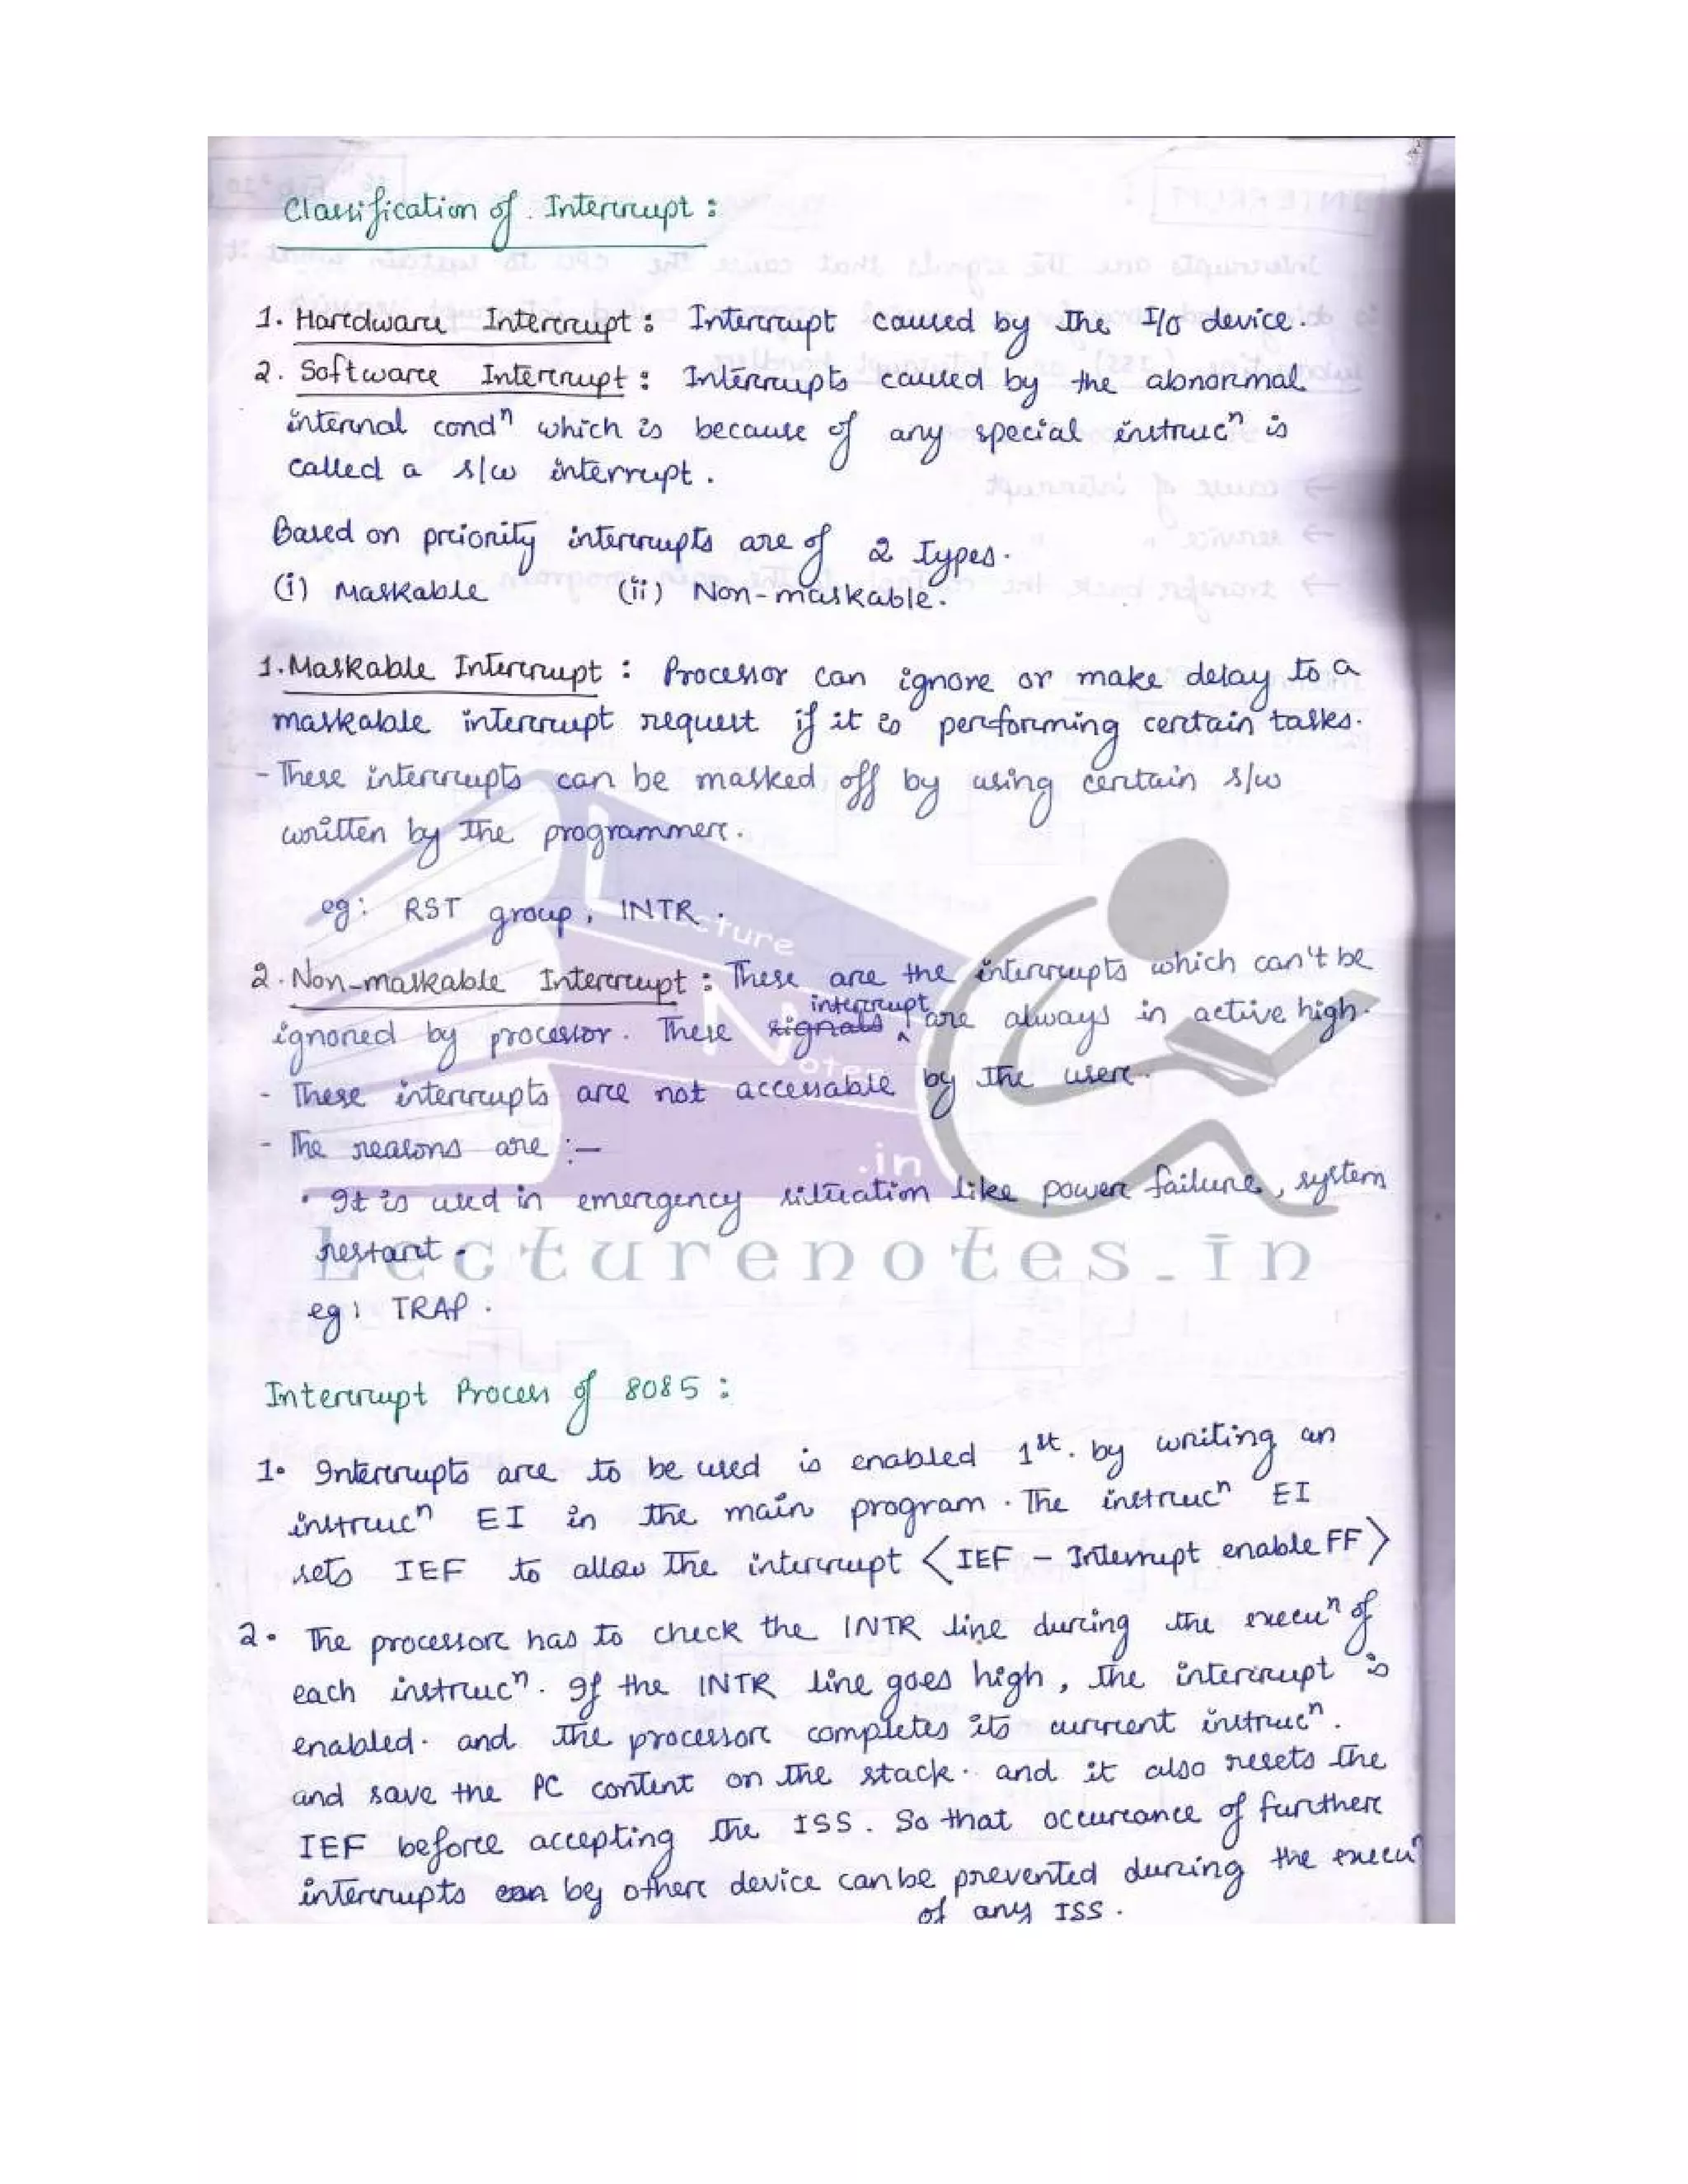 Classification of Interrupt :
1. Hardware Interrupt : Interrupt caused by the I/O device.
2. Software Interrupt : Interrupts caused by the abnormal
internal condⁿ which is because of any special instrucⁿ is
called a s/w interrupt.
Based on priority interrupts are of 2 Types.
(i) Maskable (ii) Non-maskable.
1. Maskable Interrupt : Processor can ignore or make delay to a
maskable interrupt request if it is performing certain tasks.
- These interrupts can be masked off by using certain s/w
written by the programmer.
eg: RST group, INTR.
2. Non-maskable Interrupt : These are the interrupts which can't be
interrupt
ignored by processor. These signals ^ are always in active high.
- These interrupts are not accessable by the user.
- The reasons are :—
• It is used in emergency situation like power failure, system
restart.
eg: TRAP.
Lecture
Notes
.in
Lecturenotes.in
Interrupt Process of 8085 :
1. Interrupts are to be used is enabled 1st. by writing an
instrucⁿ EI in the main program. The instrucⁿ EI
sets IEF to allow The interrupt < IEF - Interrupt enable FF >
2. The processor has to check the INTR line during the execuⁿ of
each instrucⁿ. If the INTR line goes high, the interrupt is
enabled. and the processor completes its current instrucⁿ.
and save the PC content on the stack. and it also resets the
IEF before accepting the ISS. So that occurance of further
interrupts can by other device can be prevented during the execuⁿ
of any ISS.